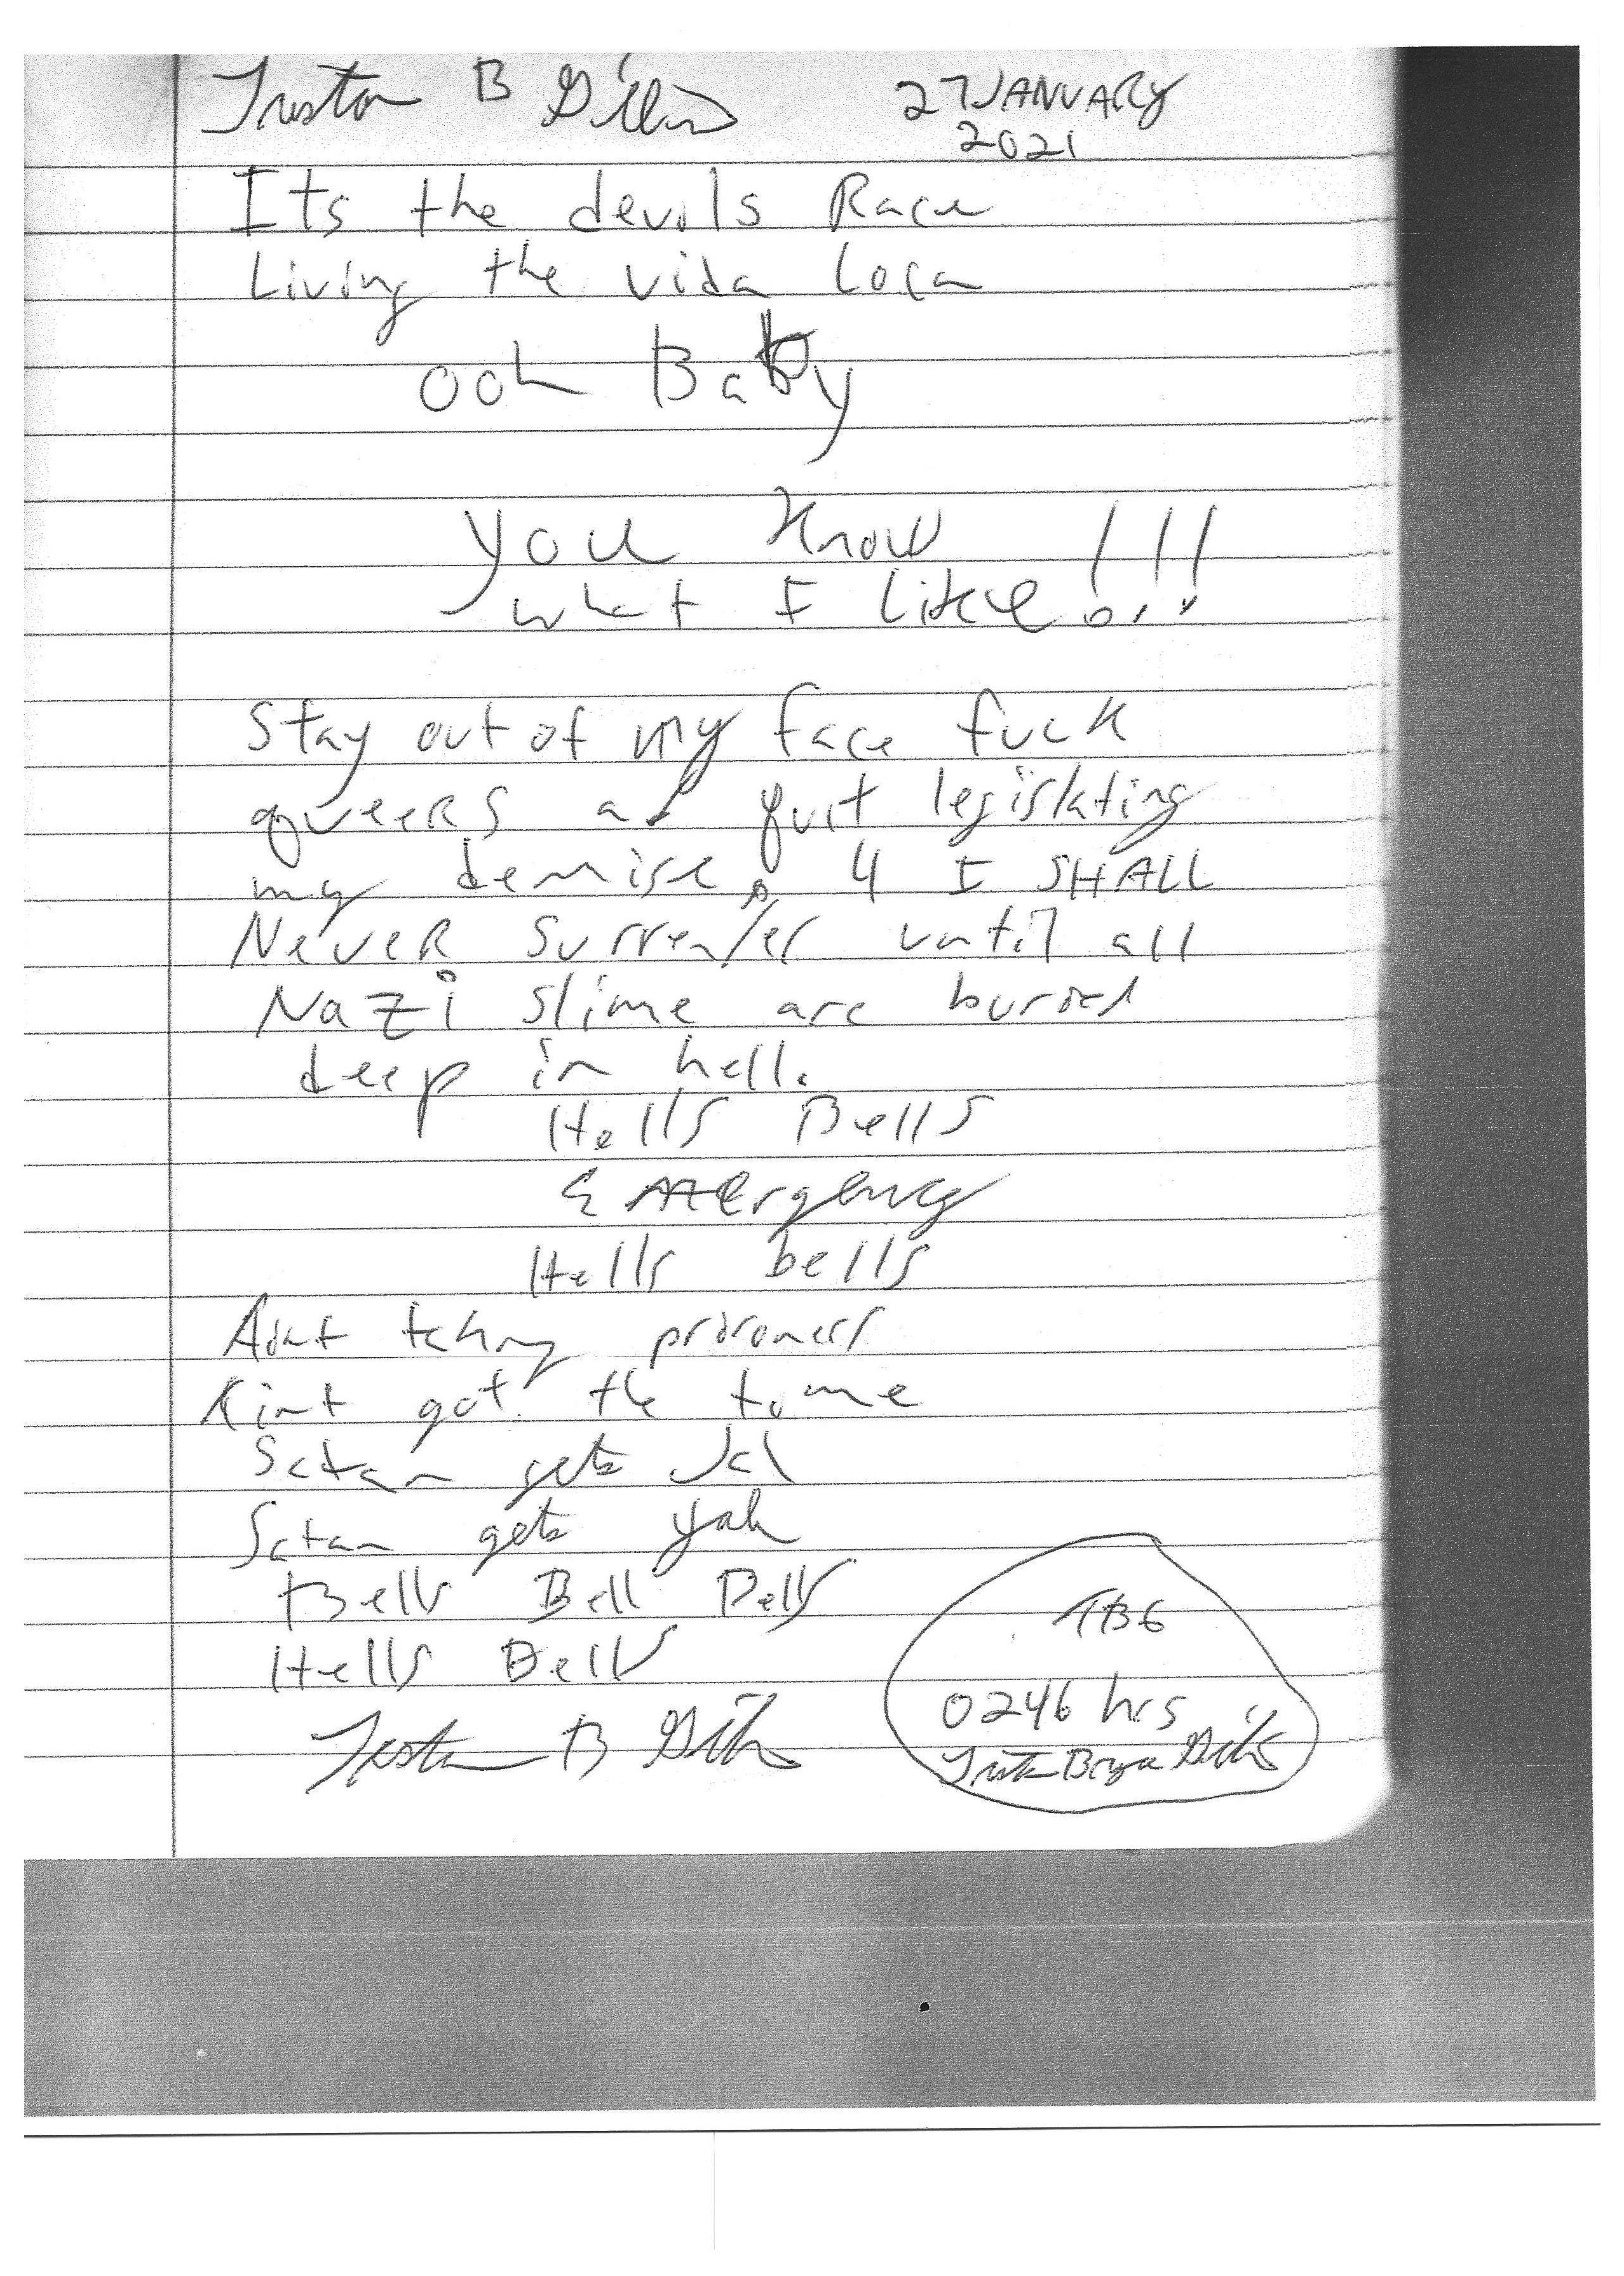 Tristan B 27 JANUARY
2021
Its the devils Race
Living the vida loca
ooh Baby
you know
what I like!!!
Stay out of my face fuck
queers ad quit legislating
my demise, 4 I SHALL
NeveR Surrender until all
Nazi Slime are buried
deep in hell.
Hells Bells
Emergency
Hells bells
Aint taking prisoners
Aint got the time
Satan gets
Satan gets yah
Bells Bell Bells
Hells Bells
TBG
0246 hrs
Tristan B